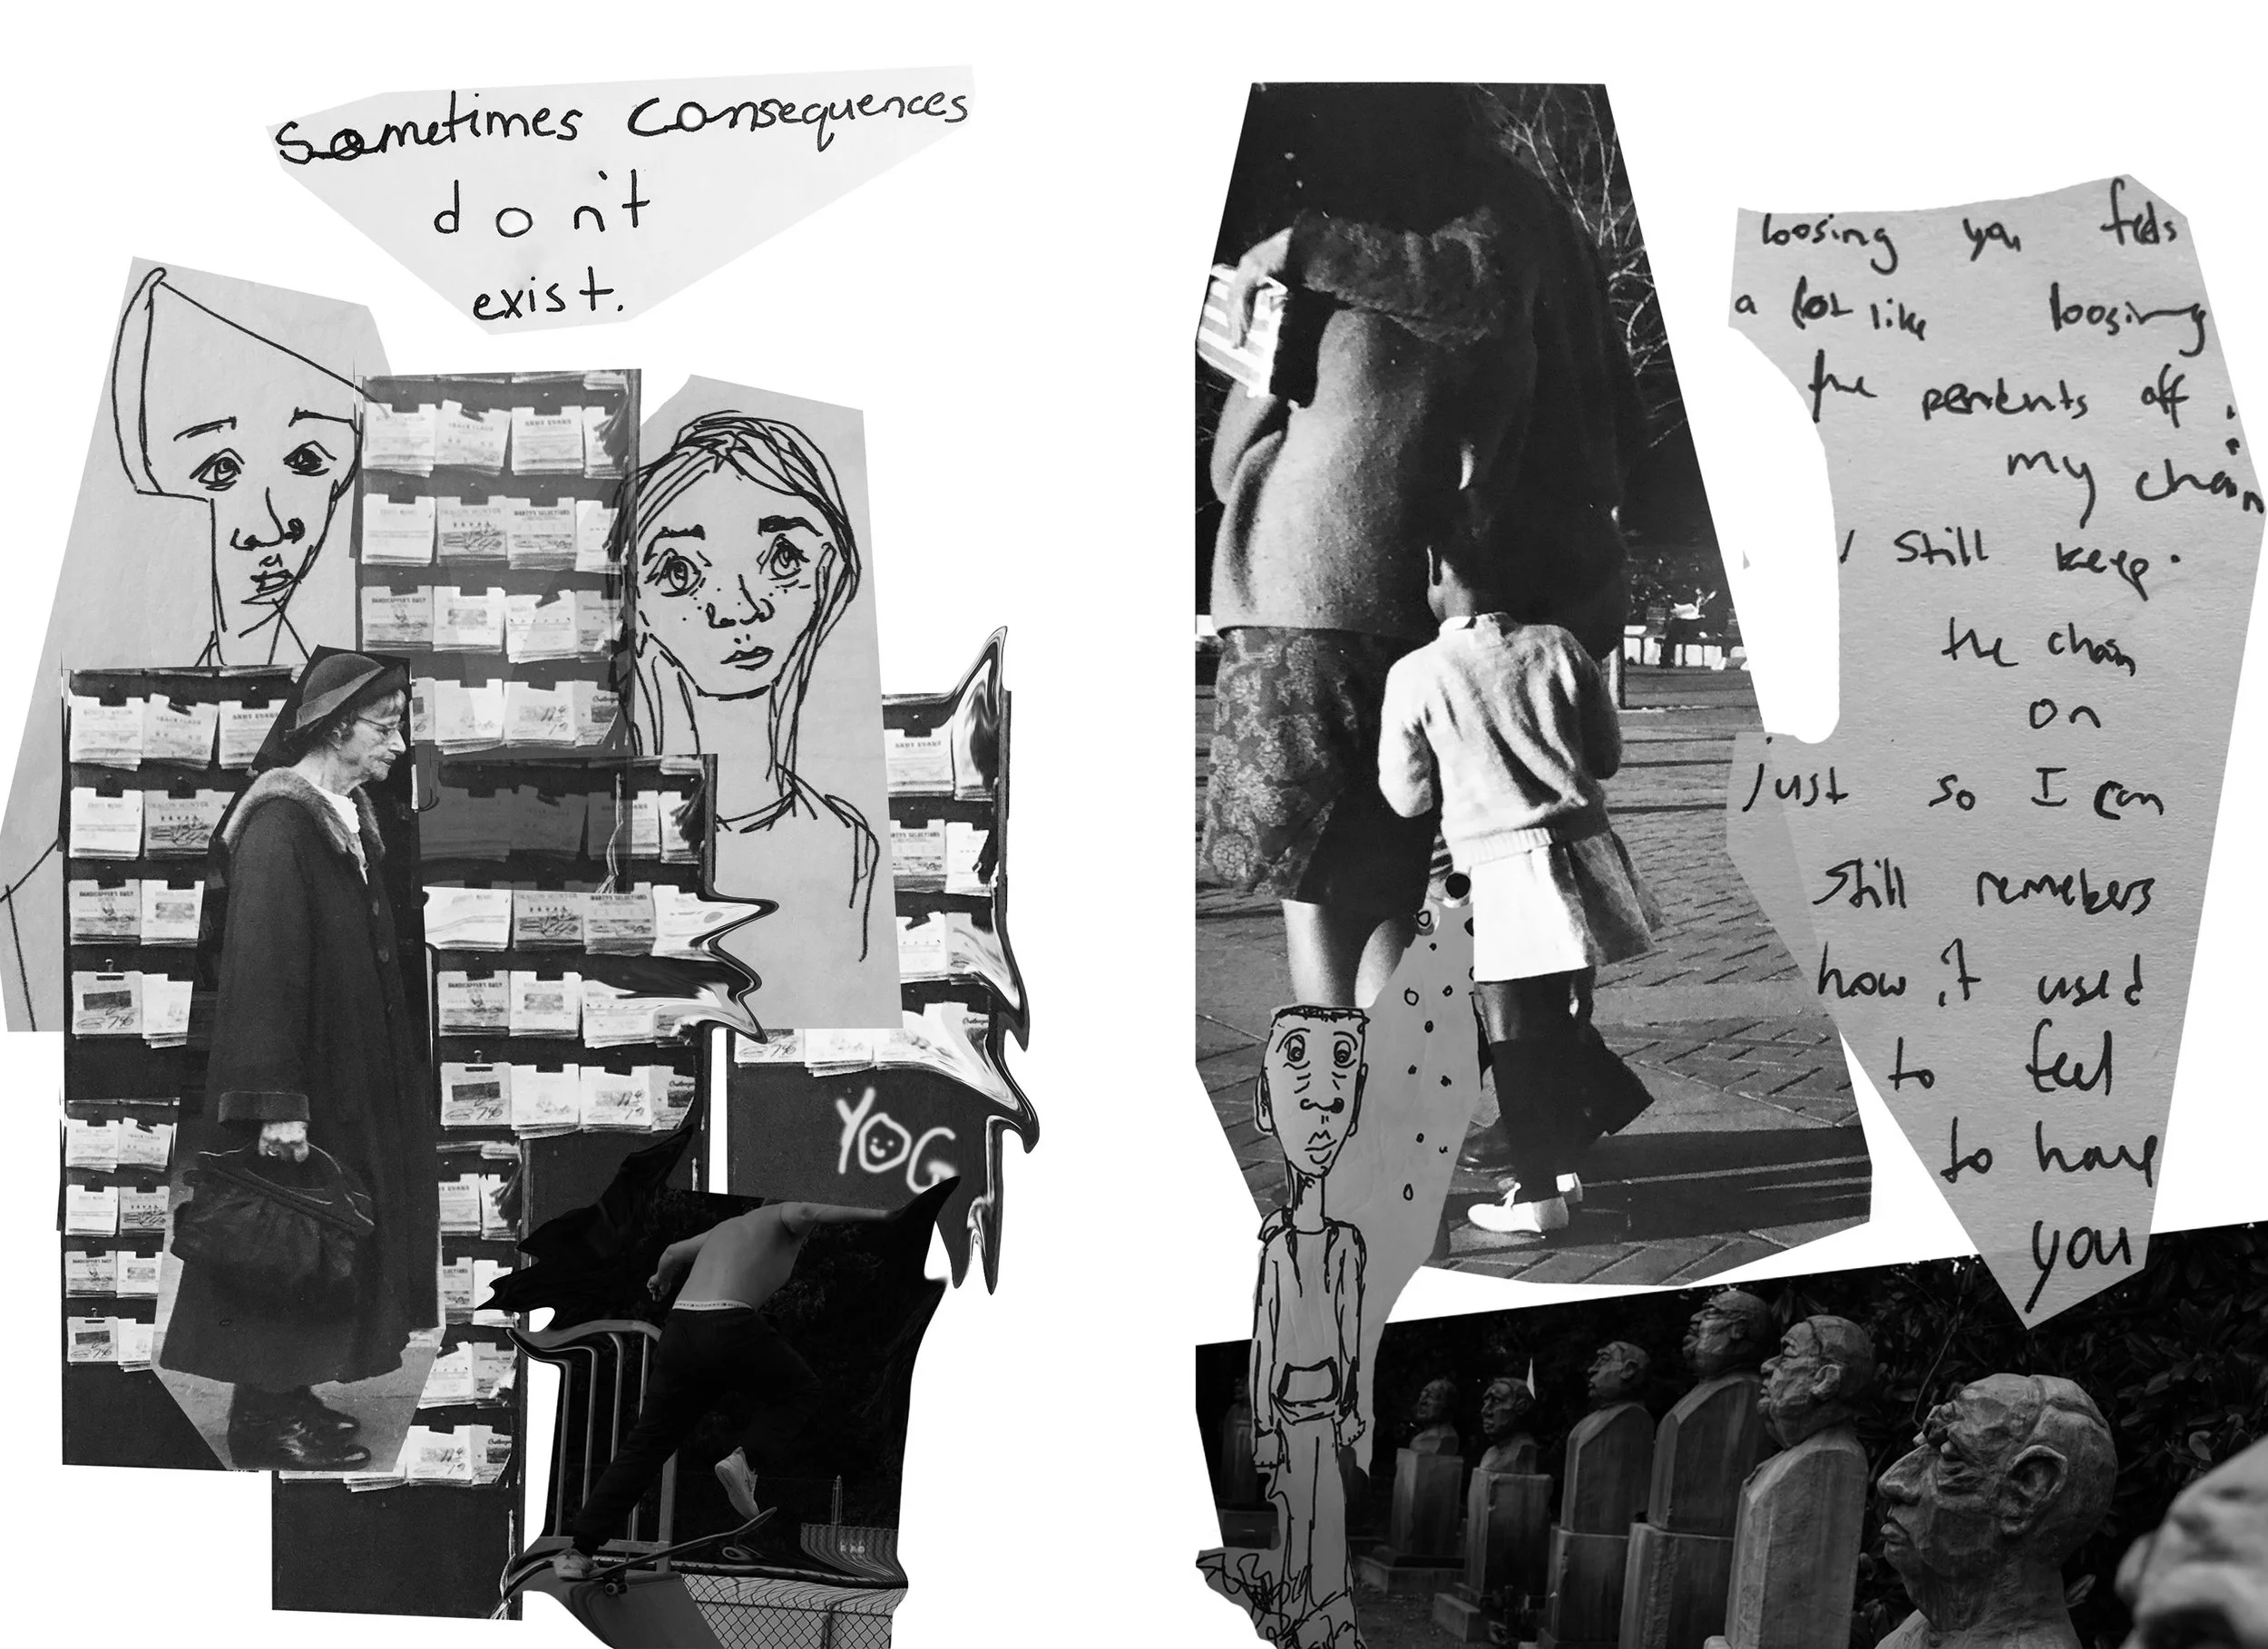 Sometimes consequences
don't
exist.
YOG
loosing you feels
a lot like loosing
the pendents off
my chain
I still keep
the chain
on
just so I can
still remebers
how it used
to feel
to have
you